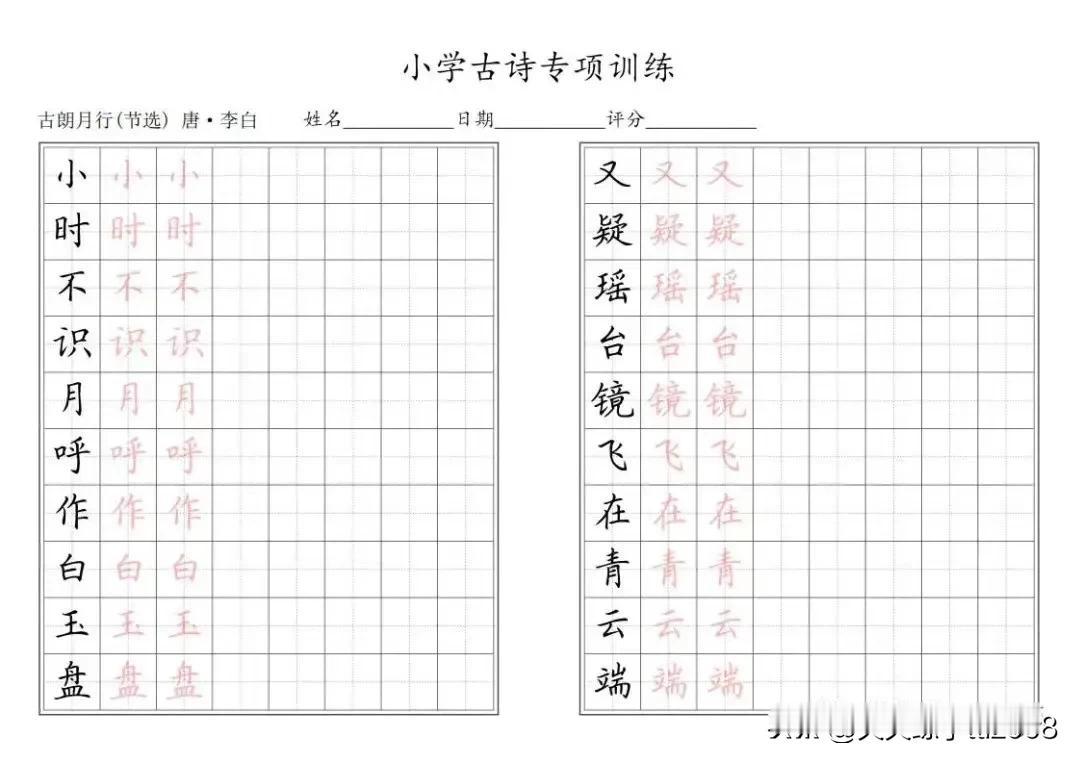 小学古诗专项训练
古朗月行(节选) 唐·李白 姓名 日期 评分
小 小 小
时 时 时
不 不 不
识 识 识
月 月 月
呼 呼 呼
作 作 作
白 白 白
玉 玉 玉
盘 盘 盘
又 又 又
疑 疑 疑
瑶 瑶 瑶
台 台 台
镜 镜 镜
飞 飞 飞
在 在 在
青 青 青
云 云 云
端 端 端